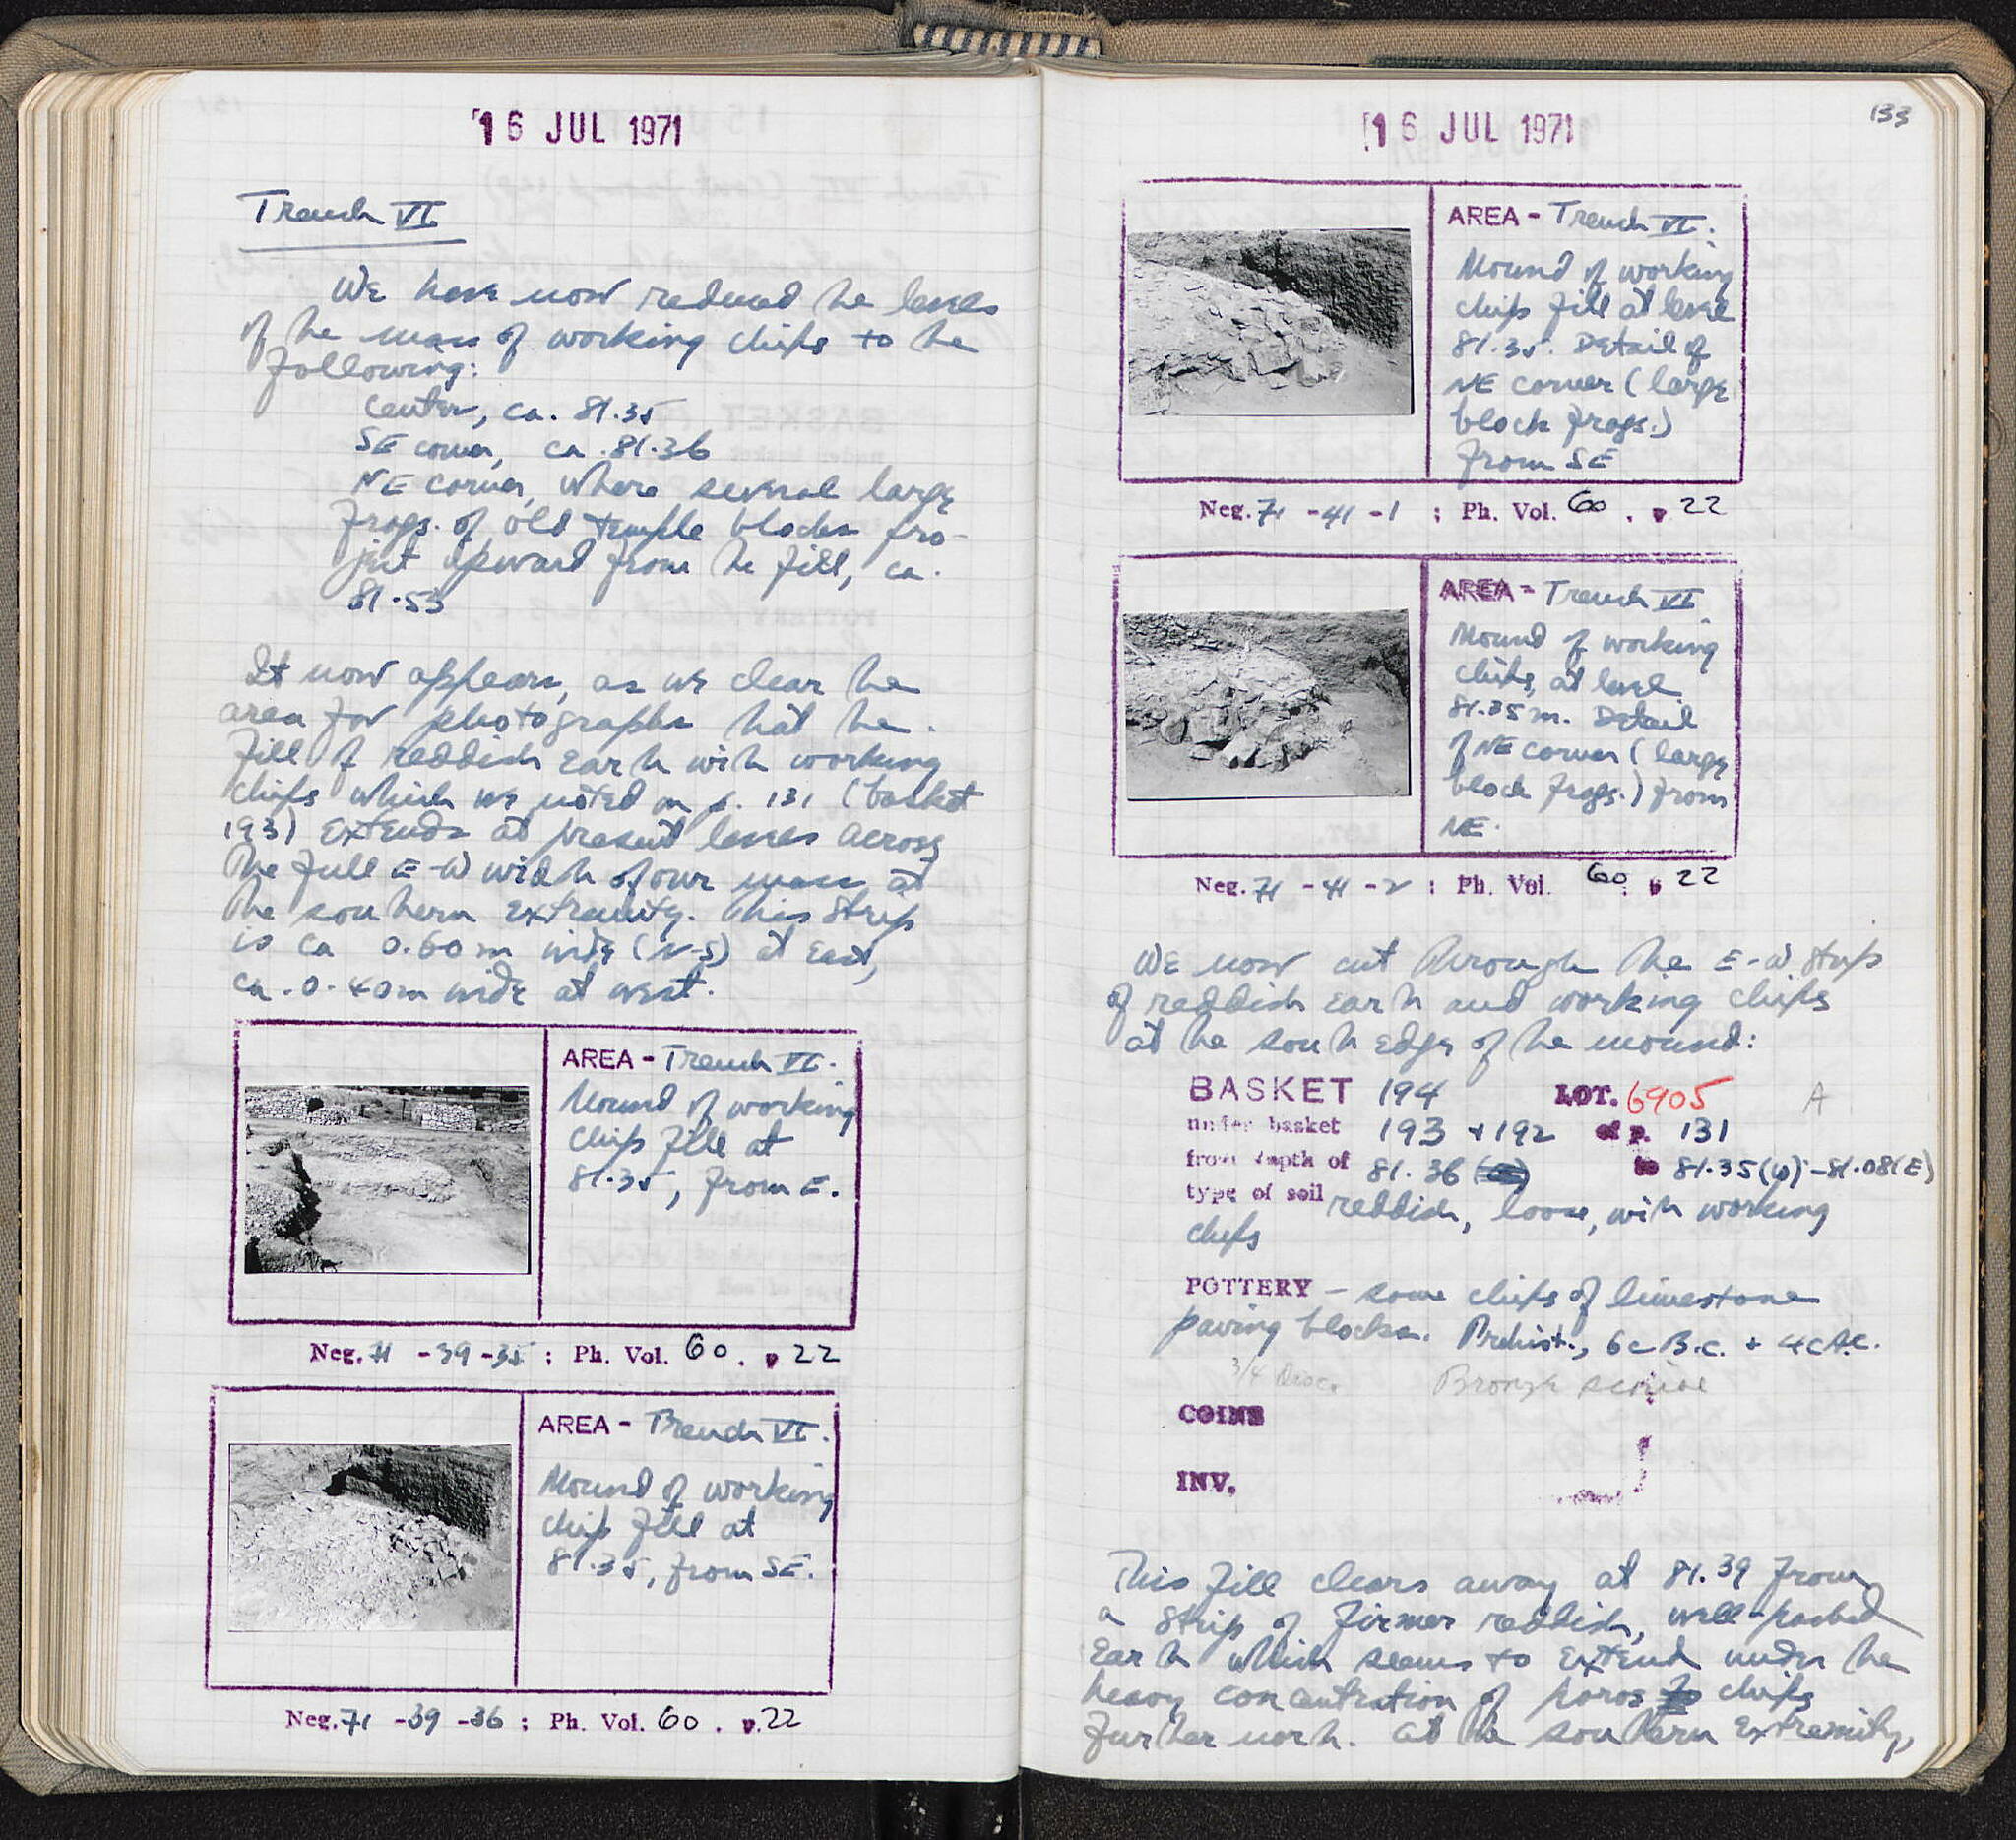 16 JUL 1971
Trench VI
We have now reduced the levels
of the mass of working chips to the
following:
Center, ca. 81.35
SE corner, ca. 81.36
NE corner, where several large
frags. of old temple blocks pro-
ject upward from the fill, ca.
81.53
It now appears, as we clear the
area for photographs that the
fill of reddish earth with working
chips which we noted on p. 131 (basket
193) extends at present levels across
the full E-W width of our mass at
the southern extremity. This strip
is ca 0.60m wide (N-S) at east,
ca. 0.40m wide at west.
AREA - Trench VI.
Mound of working
chips fill at
81.35, from E.
Neg. 71 - 39 - 35 ; Ph. Vol. 60 . p 22
AREA - Trench VI.
Mound of working
chips fill at
81.35, from SE.
Neg. 71 - 39 - 36 ; Ph. Vol. 60 . p. 22
133
16 JUL 1971
AREA - Trench VI.
Mound of working
chips fill at level
81.35. Detail of
NE corner (large
block frags.)
from SE
Neg. 71 - 41 - 1 ; Ph. Vol. 60 . p 22
AREA - Trench VI.
Mound of working
chips, at level
81.35m. Detail
of NE corner (large
block frags.) from
NE.
Neg. 71 - 41 - 2 ; Ph. Vol. 60 . p 22
We now cut through the E-W strip
of reddish earth and working chips
at the south edge of the mound:
BASKET 194 LOT. 6905 A
under basket 193 + 192 of p. 131
from depth of 81.36 to 81.35(W) - 81.08(E)
type of soil reddish, loose, with working
chips
POTTERY - some chips of limestone
paving blocks. Prehist., 6c B.C. + 4c A.C.
3/4 Disc. Bronze
COINS
INV.
This fill clears away at 81.39 from
a strip of firmer reddish, well-packed
earth which seems to extend under the
heavy concentration of poros chips
further north. At the southern extremity,